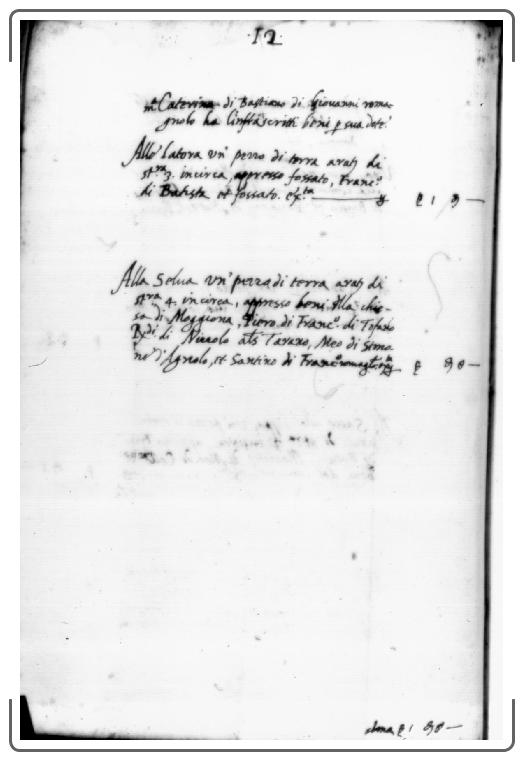 12
Caterina di Bastiano di Giovanni roma-
gnolo ha l'infrascritti beni p sua dote
Allo latora un' pezzo di terra arat. di
st.ra 3. incirca, appresso fossato, Franc.o
di Batista et fossato.
Alla Selva un' pezzo di terra arat. di
st.ra 4. incirca, appresso beni della chie-
sa di Moggiona, Piero di Franc.o di Tofano
di Nicolo als Tavano, Meo di Simo-
ne d'Agnolo, et Santino di Franc.o